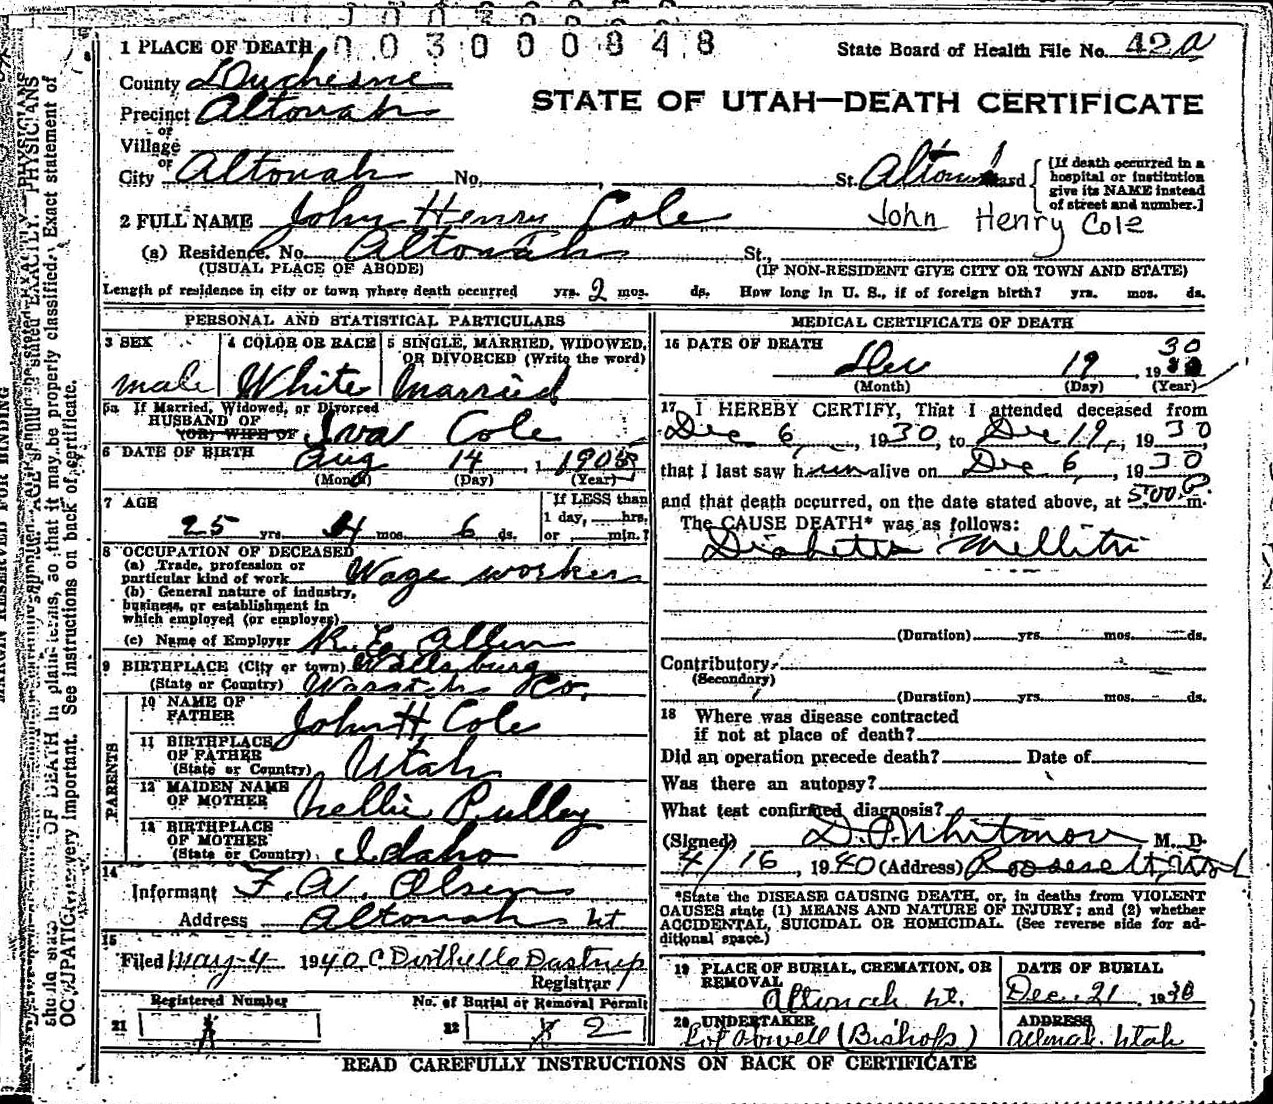 003000848
1 PLACE OF DEATH State Board of Health File No. 42a
County Duchesne
STATE OF UTAH—DEATH CERTIFICATE
Precinct Altonah
or
Village
or
City Altonah No. St. Altonah Ward {[If death occurred in a hospital or institution give its NAME instead of street and number.]
2 FULL NAME John Henry Cole John Henry Cole
(a) Residence. No. Altonah St.,
(USUAL PLACE OF ABODE) (IF NON-RESIDENT GIVE CITY OR TOWN AND STATE)
Length of residence in city or town where death occurred yrs. 2 mos. ds. How long in U. S., if of foreign birth? yrs. mos. ds.
PERSONAL AND STATISTICAL PARTICULARS
3 SEX 4 COLOR OR RACE 5 SINGLE, MARRIED, WIDOWED, OR DIVORCED (Write the word)
male White Married
5a If Married, Widowed, or Divorced
HUSBAND OF
(OR) WIFE OF Iva Cole
6 DATE OF BIRTH Aug 14, 190
(Month) (Day) (Year)
7 AGE If LESS than
1 day, hrs.
25 yrs. 4 mos. 6 ds. or min.?
8 OCCUPATION OF DECEASED
(a) Trade, profession or
particular kind of work Wage worker
(b) General nature of industry,
business, or establishment in
which employed (or employer)
(c) Name of Employer R. E. Allen
9 BIRTHPLACE (City or town) Wallsburg
(State or Country) Wasatch Co.
PARENTS
10 NAME OF
FATHER John H. Cole
11 BIRTHPLACE
OF FATHER
(State or Country) Utah
12 MAIDEN NAME
OF MOTHER Nellie Pulley
13 BIRTHPLACE
OF MOTHER
(State or Country) Idaho
14
Informant F. W. Olsen
Address Altonah Ut
15
Filed May 4 1940 Dastrup
Registrar
Registered Number No. of Burial or Removal Permit
21 22 2
MEDICAL CERTIFICATE OF DEATH
16 DATE OF DEATH 30
Dec 19 19
(Month) (Day) (Year)
17 I HEREBY CERTIFY, That I attended deceased from
Dec 6, 1930, to Dec 19, 1930,
that I last saw him alive on Dec 6, 1930
and that death occurred, on the date stated above, at 5:00 P m.
The CAUSE DEATH* was as follows:
Diabetis Mellitis
(Duration) yrs. mos. ds.
Contributory
(Secondary)
(Duration) yrs. mos. ds.
18 Where was disease contracted
if not at place of death?
Did an operation precede death? Date of
Was there an autopsy?
What test confirmed diagnosis?
(Signed) D. P. Whitmore M. D.
4/16 1940 (Address) Roosevelt, Utah
*State the DISEASE CAUSING DEATH, or, in deaths from VIOLENT
CAUSES state (1) MEANS AND NATURE OF INJURY; and (2) whether
ACCIDENTAL, SUICIDAL OR HOMICIDAL. (See reverse side for ad-
ditional space.)
19 PLACE OF BURIAL, CREMATION, OR REMOVAL DATE OF BURIAL
Altonah Ut. Dec. 21, 1930
20 UNDERTAKER ADDRESS
(Bishops) Altonah Utah
READ CAREFULLY INSTRUCTIONS ON BACK OF CERTIFICATE
MARGIN RESERVED FOR BINDING
stated EXACTLY. PHYSICIANS
should state OF DEATH in plain terms, so that it may be properly classified. Exact statement of
OCCUPATION very important. See instructions on back of certificate.